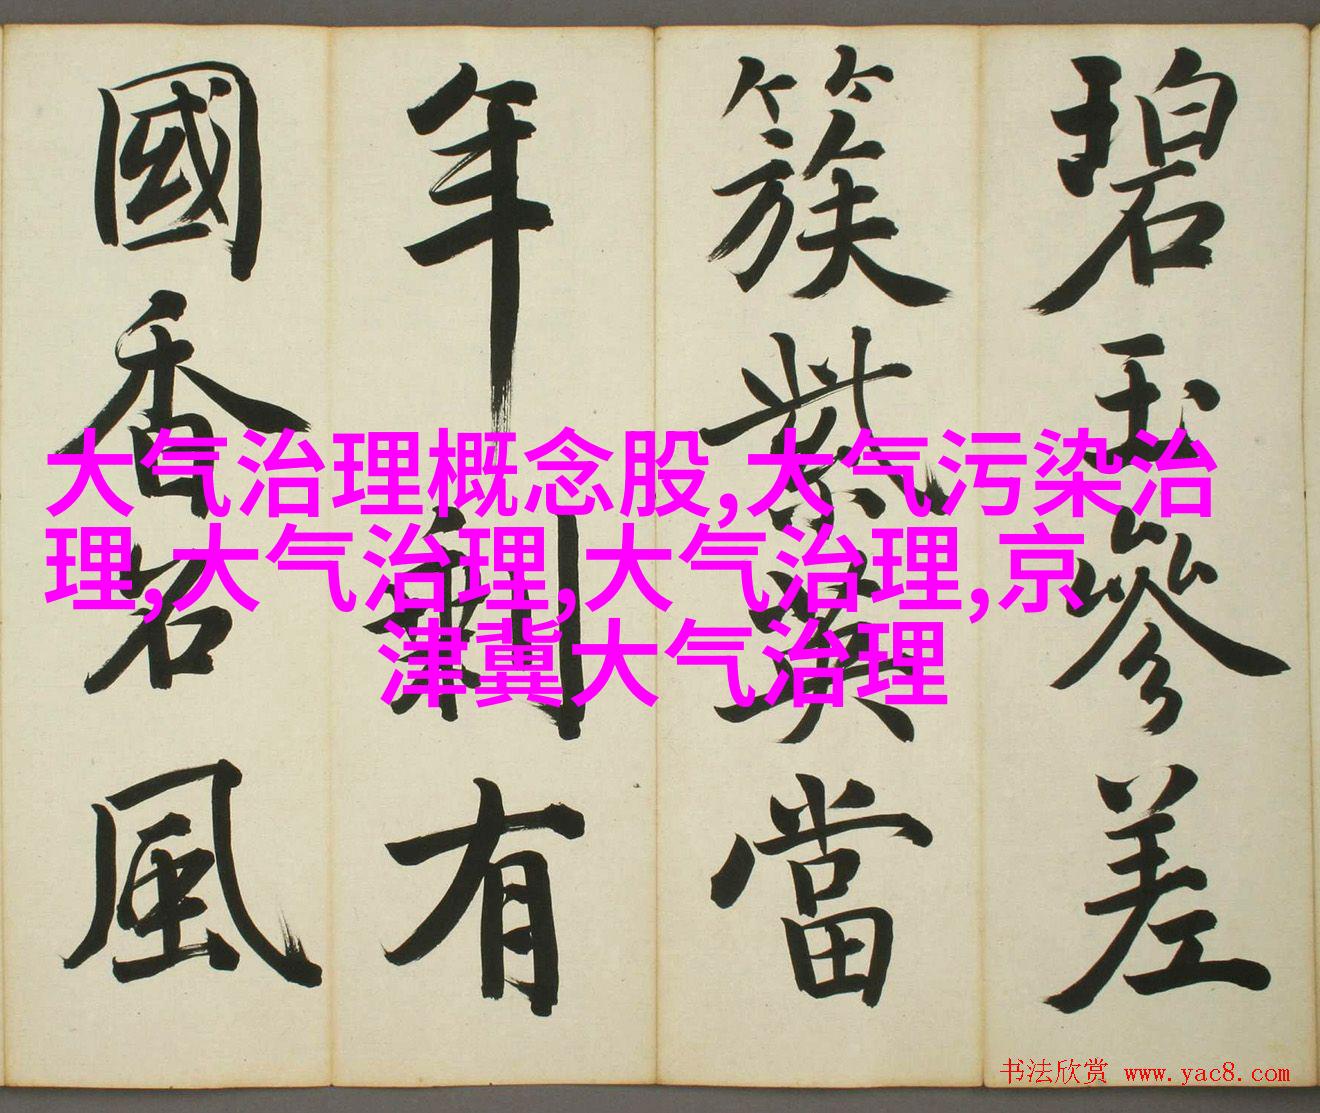 碧玉參差
簇紫英當
年剩有
國香名風
大气治理概念股,大气污染治
理,大气治理,大气治理,京
津冀大气治理
书法欣赏 www.yac8.com